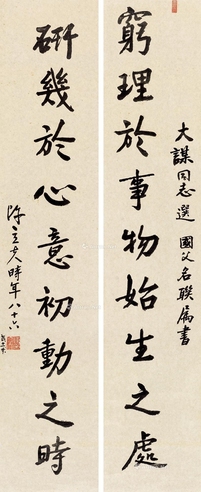 大謀同志選 國父名聯屬書
窮理於事物始生之處
研幾於心意初動之時
陳立夫時年八十六